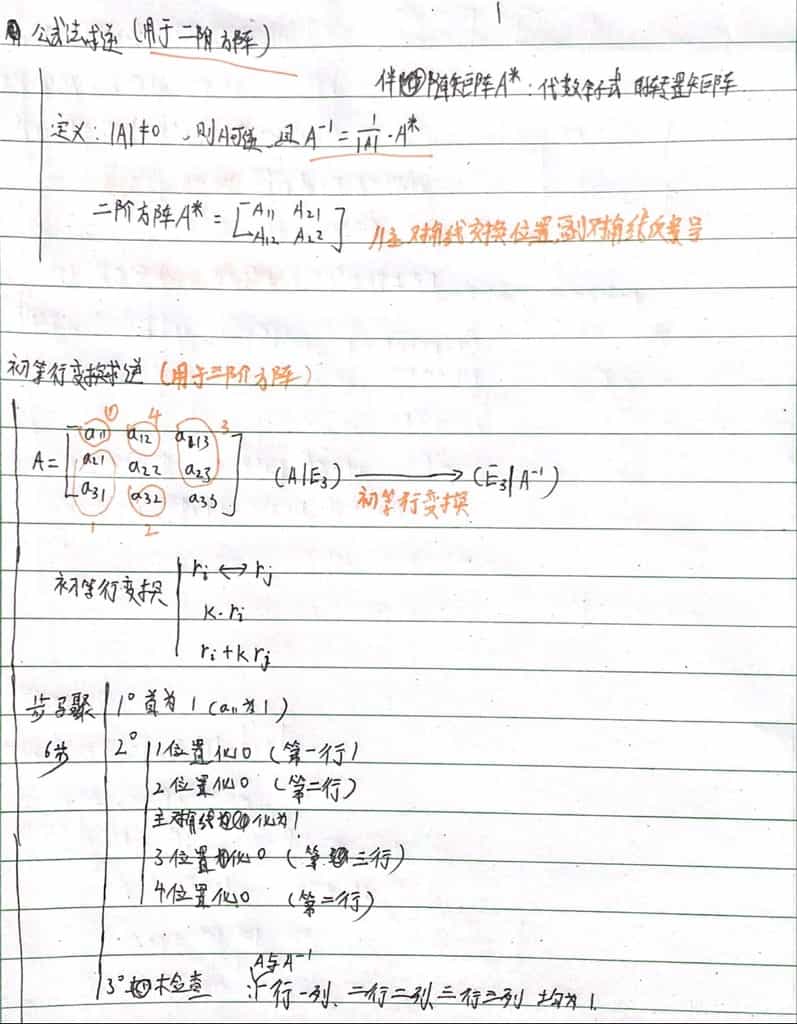 1
公式法求逆(用于二阶方阵)
伴随矩阵A*:代数余子式 的转置矩阵
定义:|A|≠0,则A可逆,且 A⁻¹=1/|A|·A*
二阶方阵A*=[A11 A21
A12 A22] //主对角线交换位置,副对角线反变号
初等行变换求逆(用于三阶方阵)
① 4 3
A=[a11 a12 a13
a21 a22 a23 (A|E3) ⟶ (E3|A⁻¹)
a31 a32 a33] 初等行变换
1 2
初等行变换 ri↔rj
k·ri
ri+krj
步骤 1° 首为1(a11为1)
6步 2° 1位置化0(第一行)
2位置化0(第二行)
主对角线化为1
3位置化0(第三行)
4位置化0(第二行)
A与A⁻¹
3° 检查:一行一列、二行二列、三行三列 均为1.